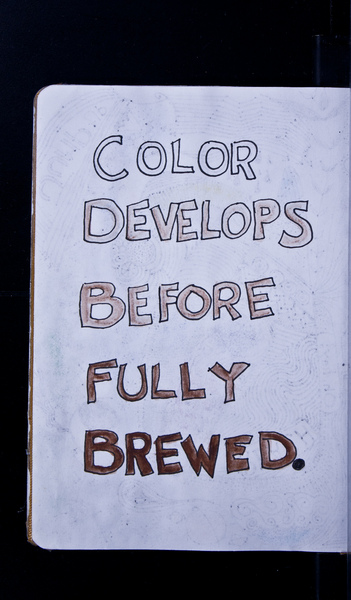 COLOR
DEVELOPS
BEFORE
FULLY
BREWED.